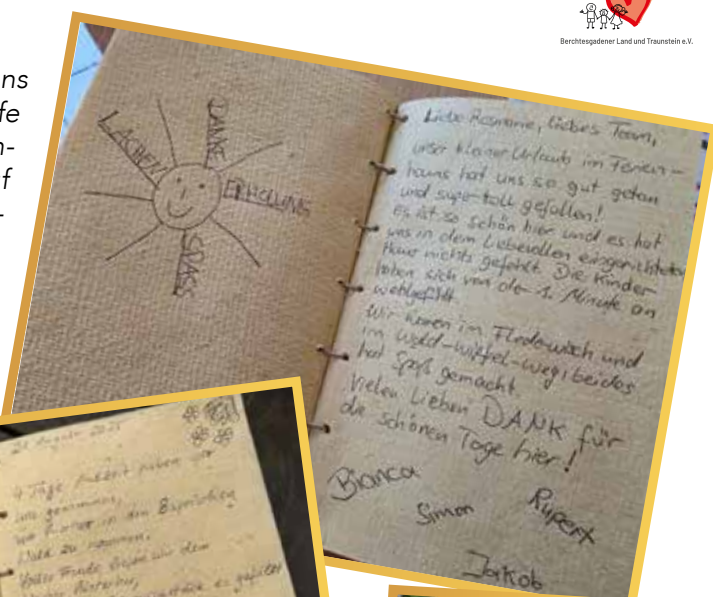 Berchtesgadener Land und Traunstein e.V.
ns
fe
n-
f
-
DANKE
LACHEN
ERHOLUNG
SPASS
Liebe Rosmarie, liebes Team,
unser kleiner Urlaub im Ferien-
haus hat uns so gut getan
und super toll gefallen!
es ist so schön hier und es hat
uns in dem Liebevollen eingerichteten
Haus nichts gefehlt. Die Kinder
haben sich von der 1. Minute an
wohlgefühlt.
Wir waren im Flederwisch und
im Wald-wipfel-weg, beides
hat Spaß gemacht.
Vielen Lieben DANK für
die schönen Tage hier!
Bianca
Simon
Rupert
Jakob
4 Tage
uns genommen,
wir in den Bayrischen
Wald zu kommen.
wir dem